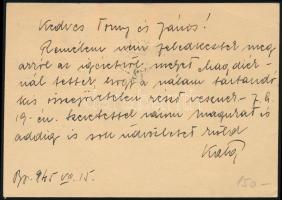 Kedves Tomy és János!
Remélem nem feledkeztek meg
arról az igéretről, melyet Magdiék-
nál tettek, hogy a nálam tartandó
kis összejövetelen részt vesznek - 7. h.
19.-én. Szeretettel várni magukat is
addig is sok üdvözletet küld
Kató
Bp. 945 VII. 15.
150-